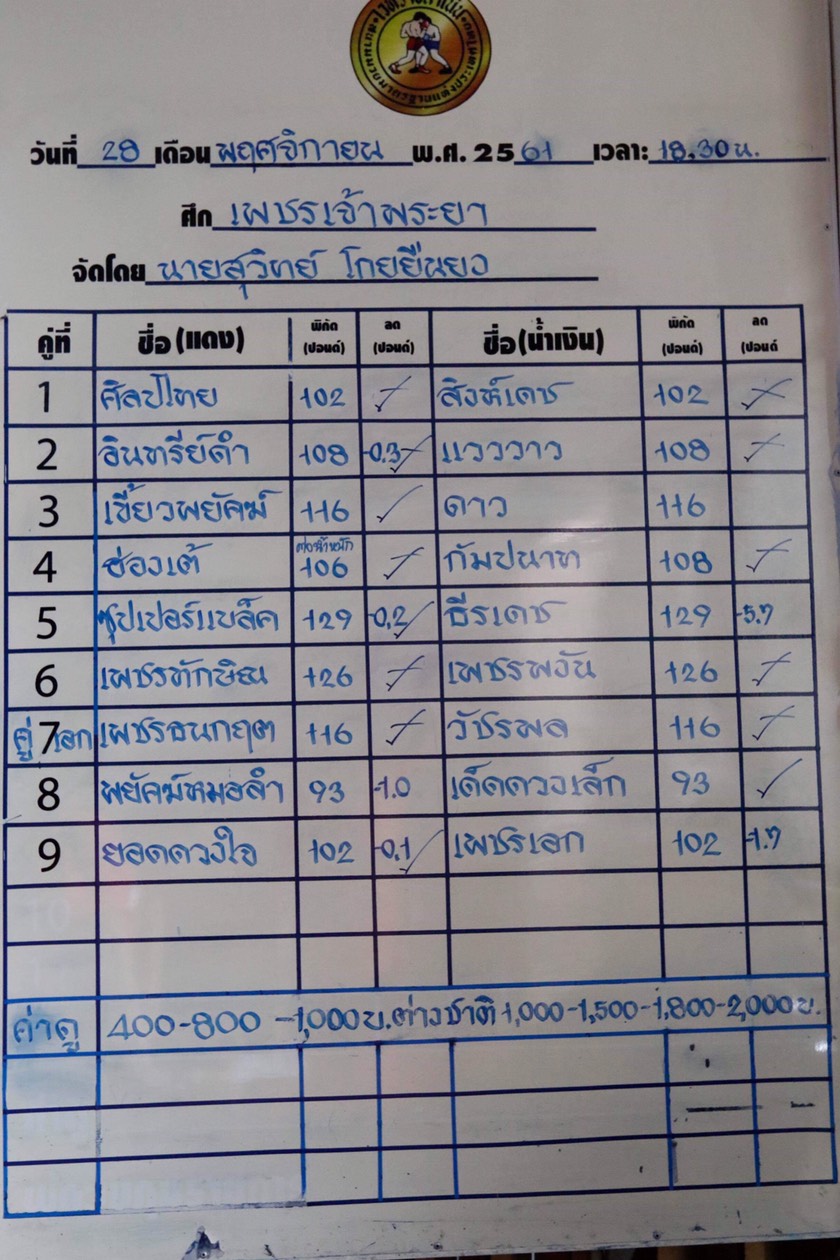 เวทีราชดำเนิน
สนามมวยมาตรฐานแห่งประเทศไทย
วันที่ 28 เดือน พฤศจิกายน พ.ศ. 2561 เวลา: 18.30 น.
ศึก เพชรเจ้าพระยา
จัดโดย นายสุวิทย์ โกยยืนยง
คู่ที่ ชื่อ (แดง) พิกัด (ปอนด์) ลด (ปอนด์) ชื่อ (น้ำเงิน) พิกัด (ปอนด์) ลด (ปอนด์
1 ศิลป์ไทย 102 สิงห์เดช 102
2 อินทรีย์ดำ 108 -0.3 แวววาว 108
3 เขี้ยวพยัคฆ์ 116 ✓ ดาว 116
4 ฮ่องเต้ ต่อน้ำหนัก 106 กัมปนาท 108
5 ซุปเปอร์แบล็ค 129 -0.2 ธีรเดช 129 -5.7
6 เพชรทักษิณ 126 เพชรพงัน 126
คู่ 7 เอก เพชรธนกฤต 116 วัชรพล 116
8 พยัคฆ์หมอลำ 93 -1.0 เด็ดดวงเล็ก 93 ✓
9 ยอดดวงใจ 102 -0.1 เพชรเอก 102 -1.7
ค่าดู 400-800 -1,000 บ. ต่างชาติ 1,000-1,500-1,800-2,000 บ.